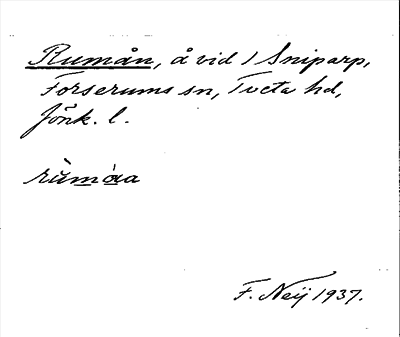 Rumån, å vid 1 Sniparp,
Forserums sn, Tveta hd,
Jönk. l.
F. Neij 1937.